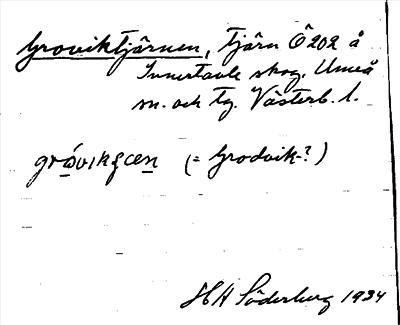 Groviktjärnen, tjärn Ö202 å
Innertavle skog, Umeå
sn. och tg. Västerb. l.
(= Grodvik-?)
HH Söderberg 1934